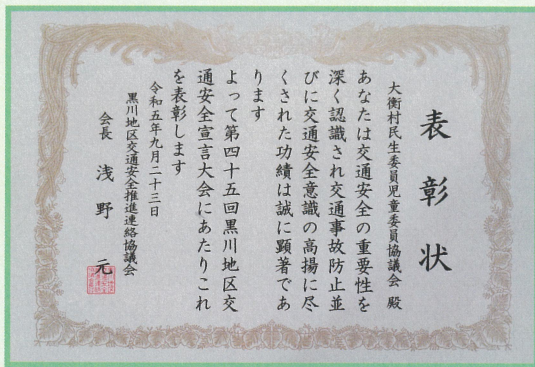 表彰状
大衡村民生委員児童委員協議会 殿
あなたは交通安全の重要性を
深く認識され交通事故防止並
びに交通安全意識の高揚に尽
くされた功績は誠に顕著であ
ります
よって第四十五回黒川地区交
通安全宣言大会にあたりこれ
を表彰します
令和五年九月二十三日
黒川地区交通安全推進連絡協議会
会長 浅野 元